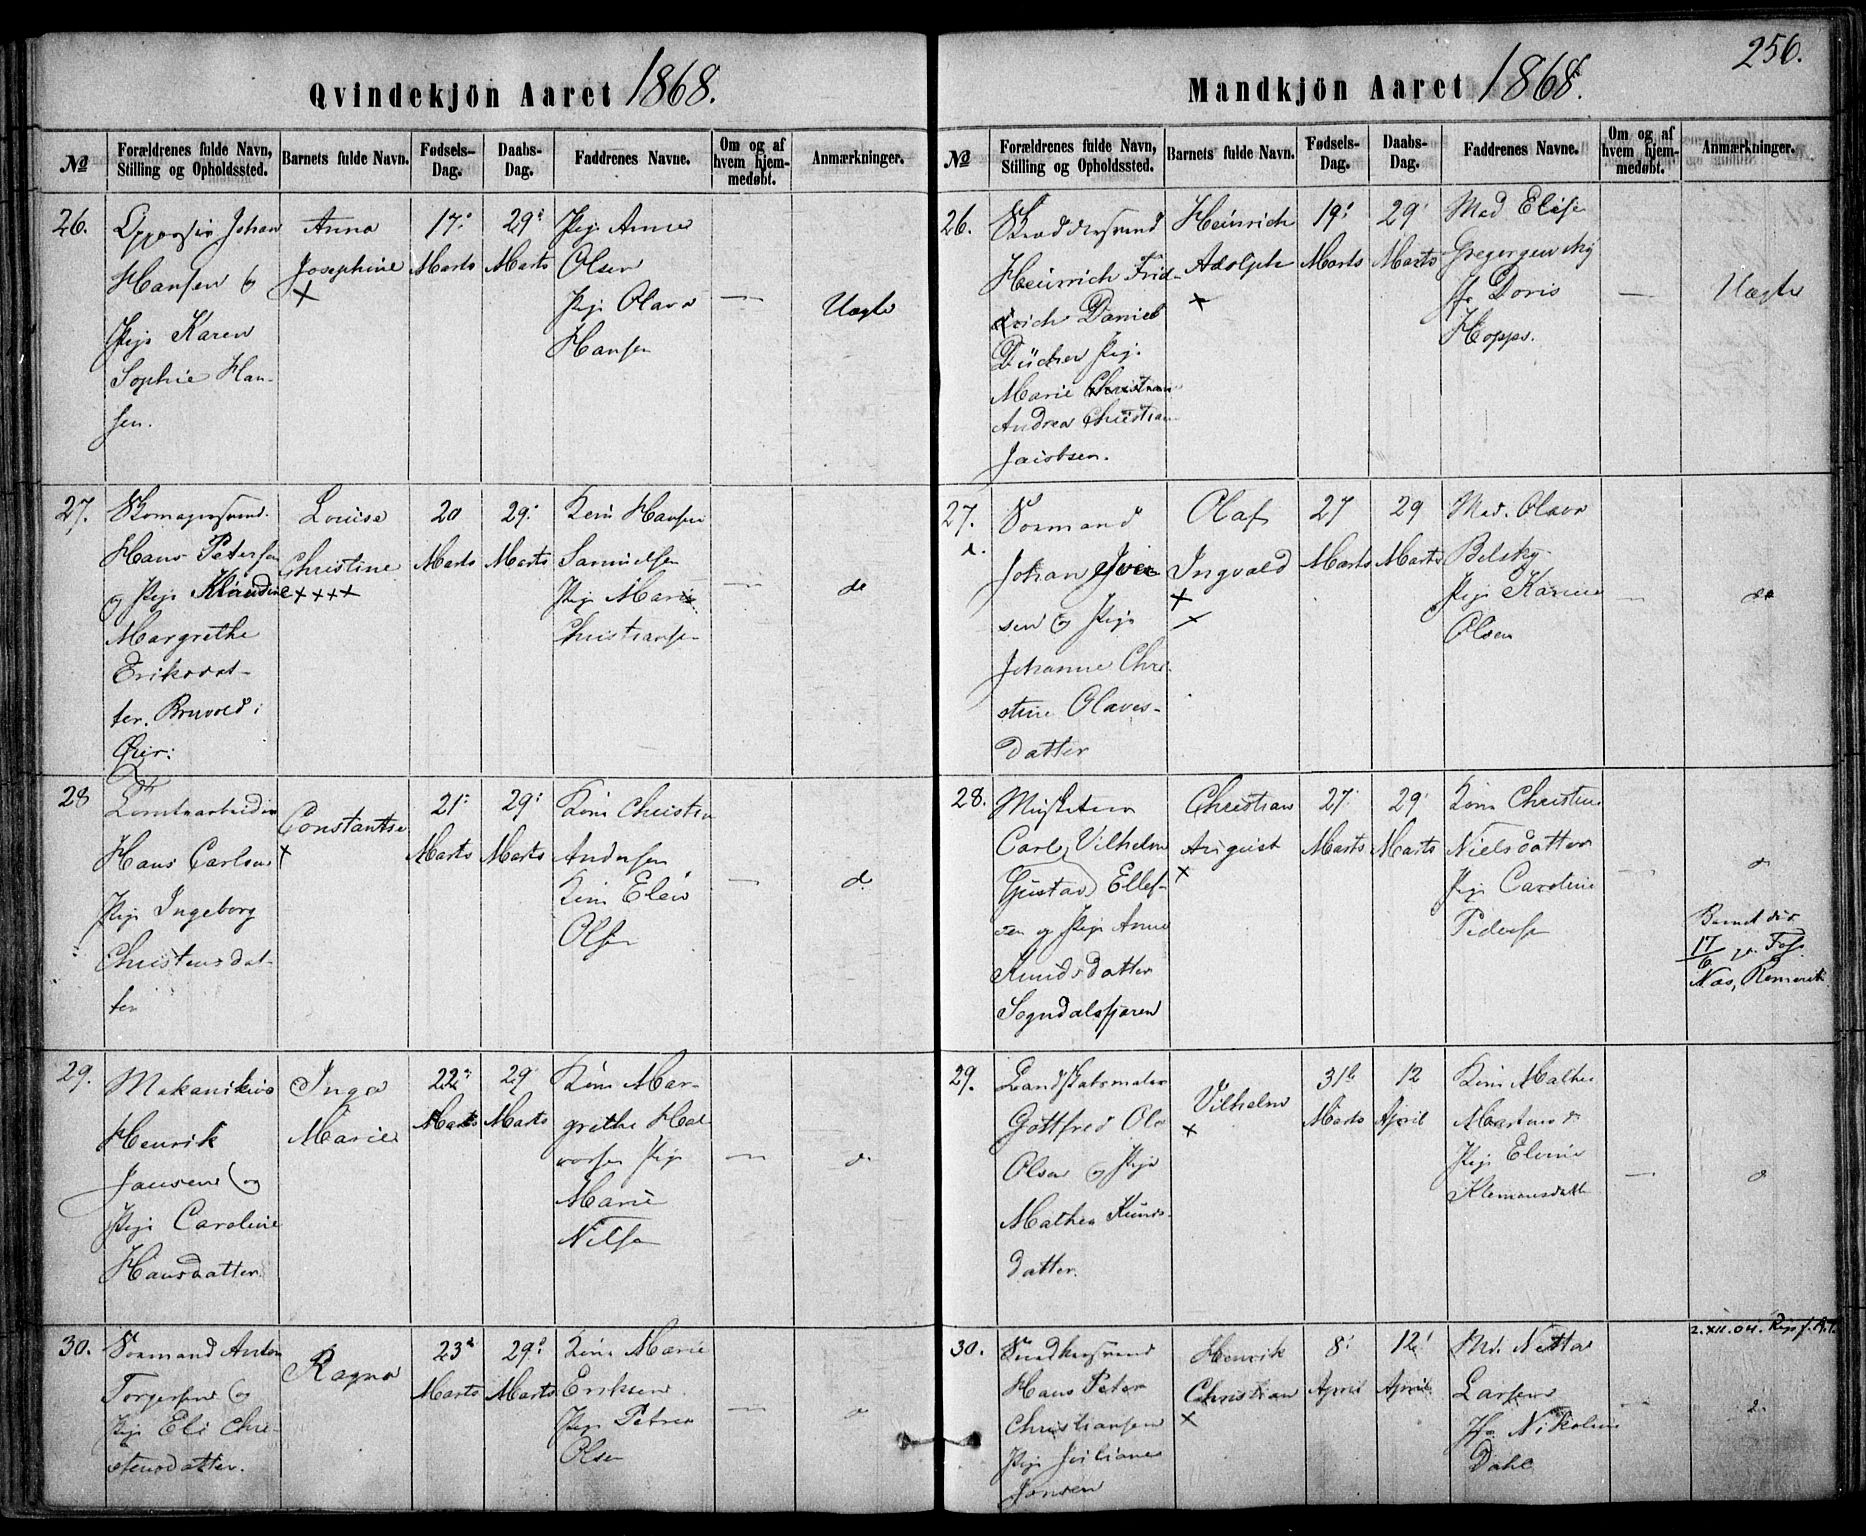 256.
Qvindekjön Aaret 1868.
№
Forældrenes fulde Navn,
Stilling og Opholdssted.
Barnets fulde Navn.
Fødsels-
Dag.
Daabs-
Dag.
Faddrenes Navne.
Om og af
hvem hjem-
medøbt.
Anmærkninger.
26.
Johan
Hansen og
Pige Karen
Sophie Han-
sen.
Anna
Josephine
+
17
Marts
29
Marts
Pige Anne
Olsen
Pige Olava
Hansen
—
Uægte
27.
Skomagersvend
Hans Petersen
og Pige Klaudine
Margrethe
Eriksdat-
ter.
Louise
Christine
++++
20
Marts
29
Marts
Kone Hansine
Samuelsen
Pige Marie
Christiansen
—
do
28
Tomtearbeider
Hans Carlsen
Pige Ingeborg
Christensdat-
ter
Constantse
+
21
Marts
29
Marts
Kone Christine
Andersen
Kone Elen
Olsen
—
d.
29.
Mekanikus
Henrik
Jansen og
Pige Caroline
Hansdatter.
Inga
Marie
22
Marts
29
Marts
Kone Mar-
grethe Hal
vorsen Pige
Marie
Nilsen
—
30.
Sømand Anton
Torgersen og
Pige Eli Chri-
stensdatter.
Ragna
23
Marts
29
Marts
Kone Marie
Eriksen
Pige Petrea
Olsen
—
Mandkjön Aaret 1868.
№
Forældrenes fulde Navn,
Stilling og Opholdssted.
Barnets fulde Navn.
Fødsels-
Dag.
Daabs-
Dag.
Faddrenes Navne.
Om og af
hvem hjem-
medøbt.
Anmærkninger.
26.
Skræddersvend
Heinrich Frid-
rich Daniel
Dücker Pige
Marie
Andrea Christian
Jacobsen.
Heinrich
Adolph
+
19
Marts
29
Marts
Mad Elise
Gregorgewsky
fr Doris
Hopps.
—
Uægte
27.
Sømand
Johan Iver
sen og Pige
Johanne Chri-
stine Olaves-
datter
Olaf
Ingvald
+
+
27
Marts
29
Marts
Mad. Olava
Belsky
Pige Karine
Olsen
—
do
28.
Musketeer
Carl Vilhelm
Gustav Ellef-
sen og Pige Anne
Knudsdatter
Sogndalsfjæren
Christian
August
+
27
Marts
29
Marts
Kone Christine
Nielsdatter
Pige Caroline
Pedersen
—
Barnet dør
17/6
Næs, Romerik
29.
Landskabsmaler
Gottfred Ole
Olsen og Pige
Mathea Knuds-
datter.
Vilhelm
+
31
Marts
12
April
Kone Mathea
Pige Elvine
Klemensdatter
—
30.
Hans Peter
Christiansen
Pige Juliane
Jonsen
Henrik
Christian
+
8
April
12
April
Md. Netta
Larsen
Nikoline
Dahl
2. XII. 04.